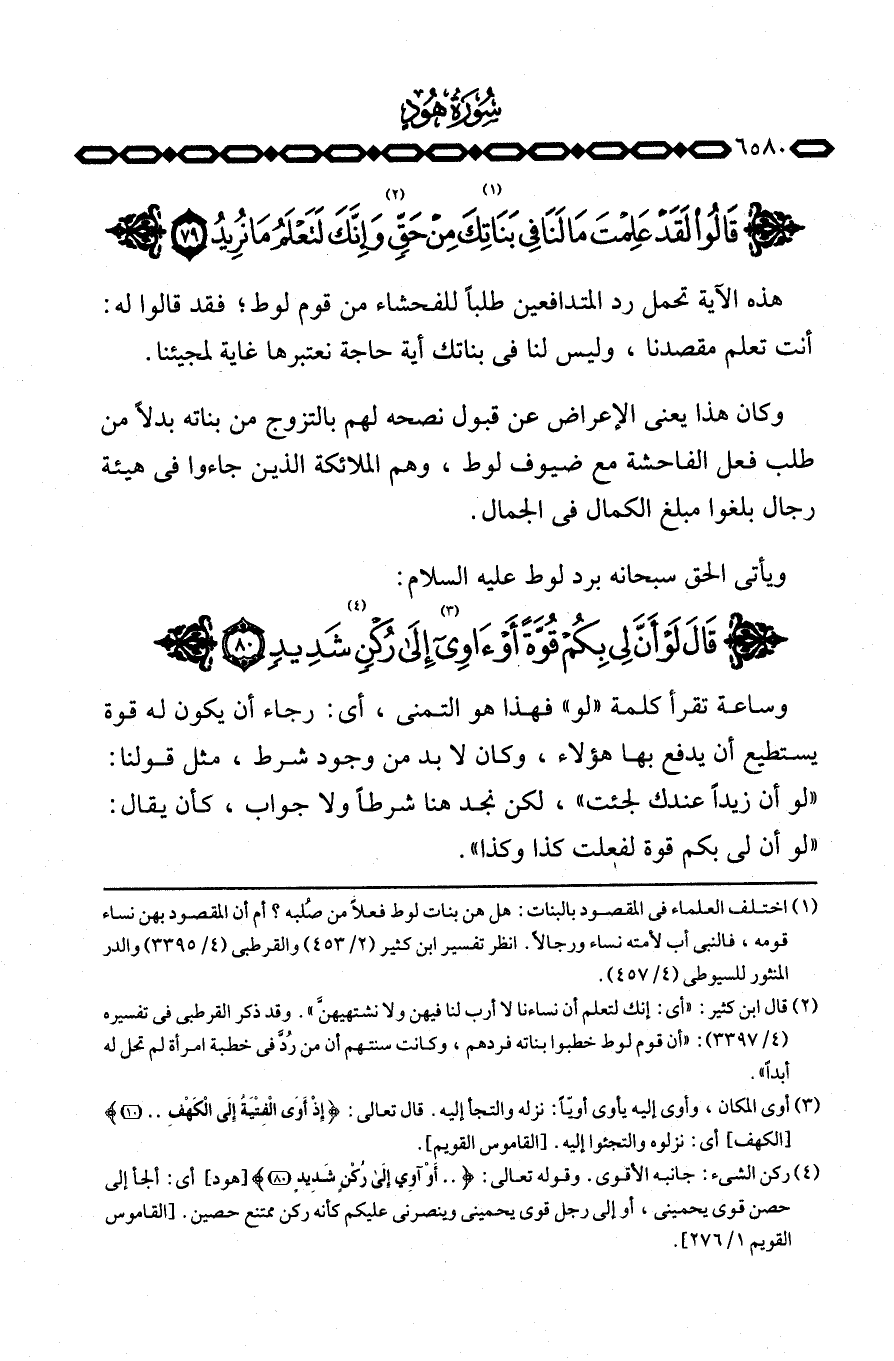 سُورَةُ هُودٍ
٦٥٨٠
قَالُوا۟ لَقَدْ عَلِمْتَ مَا لَنَا فِى بَنَاتِكَ (١) مِنْ حَقٍّ (٢) وَإِنَّكَ لَتَعْلَمُ مَا نُرِيدُ ٧٩
هذه الآية تحمل رد المتدافعين طلباً للفحشاء من قوم لوط؛ فقد قالوا له:
أنت تعلم مقصدنا ، وليس لنا فى بناتك أية حاجة نعتبرها غاية لمجيئنا.
وكان هذا يعنى الإعراض عن قبول نصحه لهم بالتزوج من بناته بدلاً من
طلب فعل الفاحشة مع ضيوف لوط ، وهم الملائكة الذين جاءوا فى هيئة
رجال بلغوا مبلغ الكمال فى الجمال.
ويأتى الحق سبحانه برد لوط عليه السلام:
قَالَ لَوْ أَنَّ لِى بِكُمْ قُوَّةً أَوْ ءَاوِىٓ (٣) إِلَىٰ رُكْنٍ (٤) شَدِيدٍ ٨٠
وساعة تقرأ كلمة «لو» فهذا هو التمنى ، أى: رجاء أن يكون له قوة
يستطيع أن يدفع بها هؤلاء ، وكان لا بد من وجود شرط ، مثل قولنا:
«لو أن زيداً عندك لجئت» ، لكن نجد هنا شرطاً ولا جواب ، كأن يقال:
«لو أن لى بكم قوة لفعلت كذا وكذا».
(١) اختلف العلماء فى المقصود بالبنات: هل هن بنات لوط فعلاً من صُلبه ؟ أم أن المقصود بهن نساء
قومه ، فالنبى أب لأمته نساء ورجالاً. انظر تفسير ابن كثير (٢/ ٤٥٣) والقرطبى (٤/ ٣٣٩٥) والدر
المنثور للسيوطى (٤/ ٤٥٧).
(٢) قال ابن كثير: «أى: إنك لتعلم أن نساءنا لا أرب لنا فيهن ولا نشتهيهنَّ». وقد ذكر القرطبى فى تفسيره
(٤/ ٣٣٩٧): «أن قوم لوط خطبوا بناته فردهم ، وكانت سنتهم أن من رُدَّ فى خطبة امرأة لم تحل له
أبداً».
(٣) أوى المكان ، وأوى إليه يأوى أويّاً: نزله والتجأ إليه. قال تعالى: ﴿إِذْ أَوَى الْفِتْيَةُ إِلَى الْكَهْفِ .. ١٠﴾
[الكهف] أى: نزلوه والتجئوا إليه. [القاموس القويم].
(٤) ركن الشىء: جانبه الأقوى. وقوله تعالى: ﴿ .. أَوْ آوِي إِلَىٰ رُكْنٍ شَدِيدٍ ٨٠﴾ [هود] أى: ألجأ إلى
حصن قوى يحمينى ، أو إلى رجل قوى يحمينى وينصرنى عليكم كأنه ركن ممتنع حصين. [القاموس
القويم ١/ ٢٧٦].